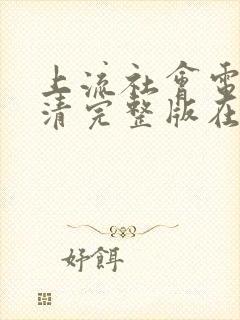 上流社會電
清完整版在
好餌